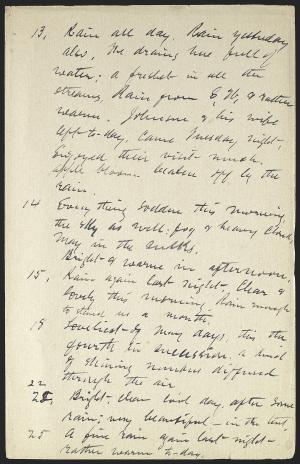 13, Rain all day. Rain yesterday
also, The drains here full of
water; a freshet in all the
streams, Rain from S, W, & rather
warm. Johnson & his wife
off to-day, Came Tuesday night,
Enjoyed their visit much.
apple bloom beaten off by the
rain.
14 Everything sodden this morning,
the sky as well, fog & heavy clouds,
May in the sulks.
Bright & warm in afternoon,
15, Rain again last night. Clear &
lovely this morning, Rain enough
to stand us a month
19 Loveliest of May days, this the
fourth in succession, a kind
of shining
through the air
22
25, Bright, clear cool day, after some
rain; very beautiful
25 A fine rain again last night
Rather warm to-day.